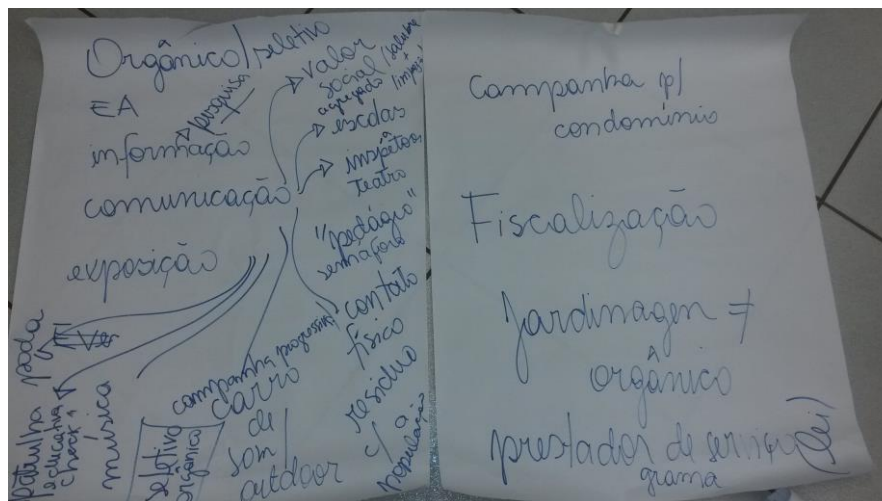 Orgânico/seletivo
EA
pesquisa
informação
comunicação
exposição
valor
social
agregado
escolas
teatro
"pedágio"
semáforo
contato
físico
resíduo
c/ a
população
campanha
carro
de
som/
outdoor
seletivo
orgânico
música
patrulha
educativa
check
poda
Campanha p/
condomínio
Fiscalização
Jardinagem ≠
orgânico
prestador de serviço (lei)
grama